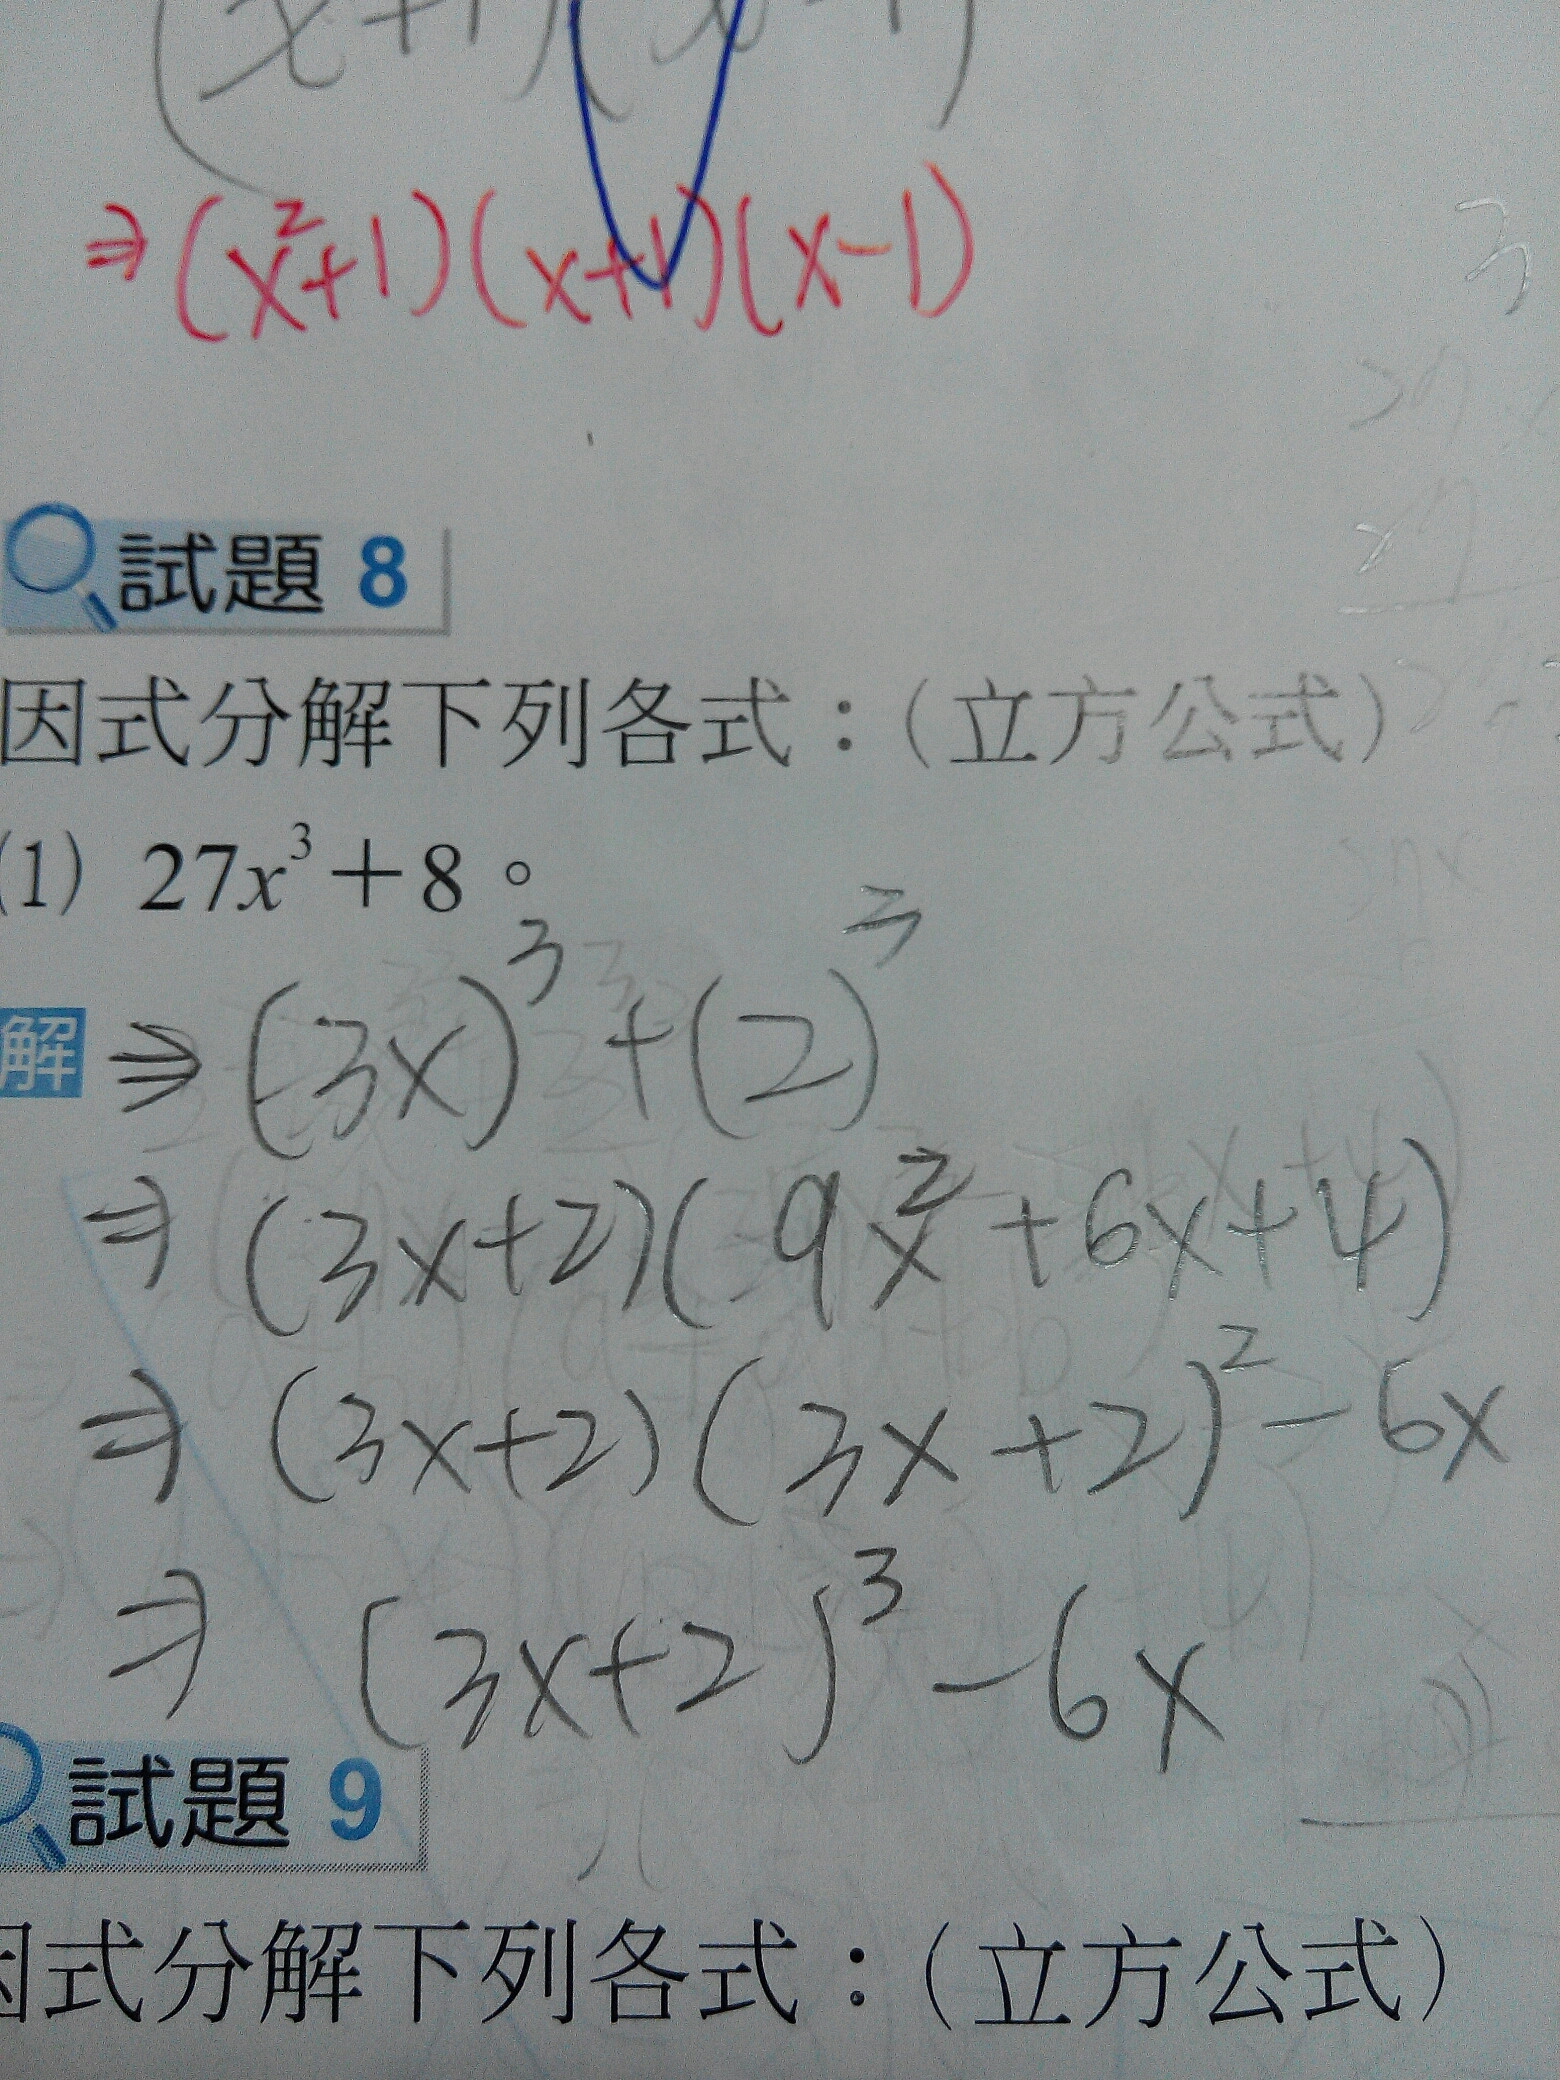 (x+1)(x-1)
⇒(x²+1)(x+1)(x-1)
3
試題 8
因式分解下列各式：(立方公式)
(1) 27x³+8。
解 ⇒(3x)³+(2)³
⇒(3x+2)(9x²+6x+4)
⇒(3x+2)(3x+2)²-6x
⇒(3x+2)³-6x
試題 9
因式分解下列各式：(立方公式)